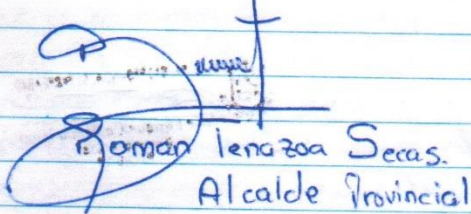 Roman Tenazoa Secas.
Alcalde Provincial